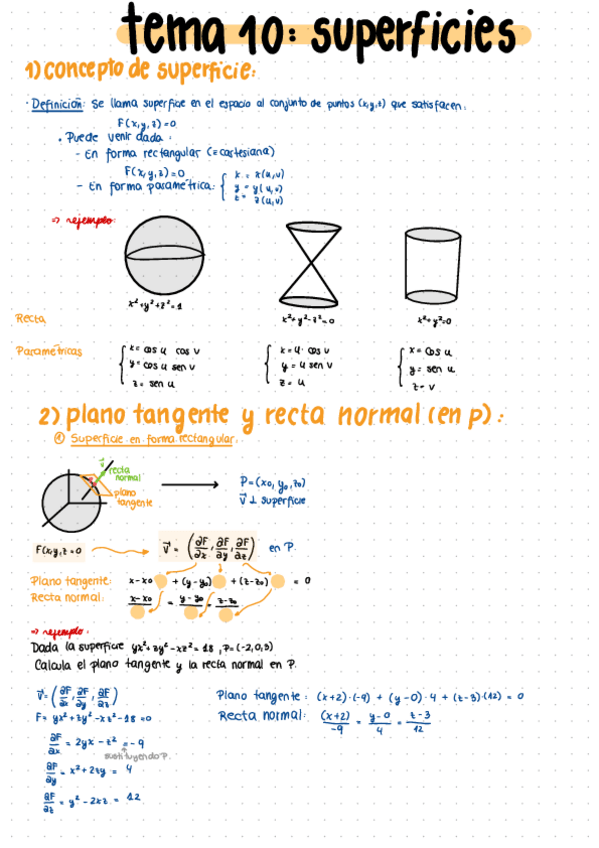 tema 10: superficies
1) concepto de superficie:
· Definición: Se llama superficie en el espacio al conjunto de puntos (x,y,z) que satisfacen:
F(x,y,z)=0
• Puede venir dada:
- En forma rectangular (=cartesiana)
F(x,y,z)=0
- En forma paramétrica: { x = x(u,v)
y = y(u,v)
z = z(u,v)
=> ejemplo:
x²+y²+z²=1
x²+y²-z²=0
x²+y²=0
Recta
Paramétricas
{ x = cos u cos v
y = cos u sen v
z = sen u
{ x = u · cos v
y = u sen v
z = u
{ x = cos u
y = sen u
z = v
2) plano tangente y recta normal (en p):
① Superficie en forma rectangular.
v
recta
normal
plano
tangente
P=(x₀, y₀, z₀)
v⃗ ⊥ superficie
F(x,y,z=0
v⃗ = (∂F/∂x, ∂F/∂y, ∂F/∂z) en P.
Plano tangente: x-x₀ + (y-y₀) + (z-z₀) = 0
Recta normal: x-x₀ = y-y₀ = z-z₀
=> ejemplo:
Dada la superficie yx²+zy²-xz²=18, P=(-2,0,3)
Calcula el plano tangente y la recta normal en P.
v⃗ = (∂F/∂x, ∂F/∂y, ∂F/∂z)
F= yx²+zy²-xz²-18=0
∂F/∂x = 2yx - z² = -9
sustituyendo P.
∂F/∂y = x²+2zy = 4
∂F/∂z = y²-2xz = 12
Plano tangente: (x+2)·(-9) + (y-0)·4 + (z-3)·(12) = 0
Recta normal: (x+2)/-9 = y-0/4 = z-3/12